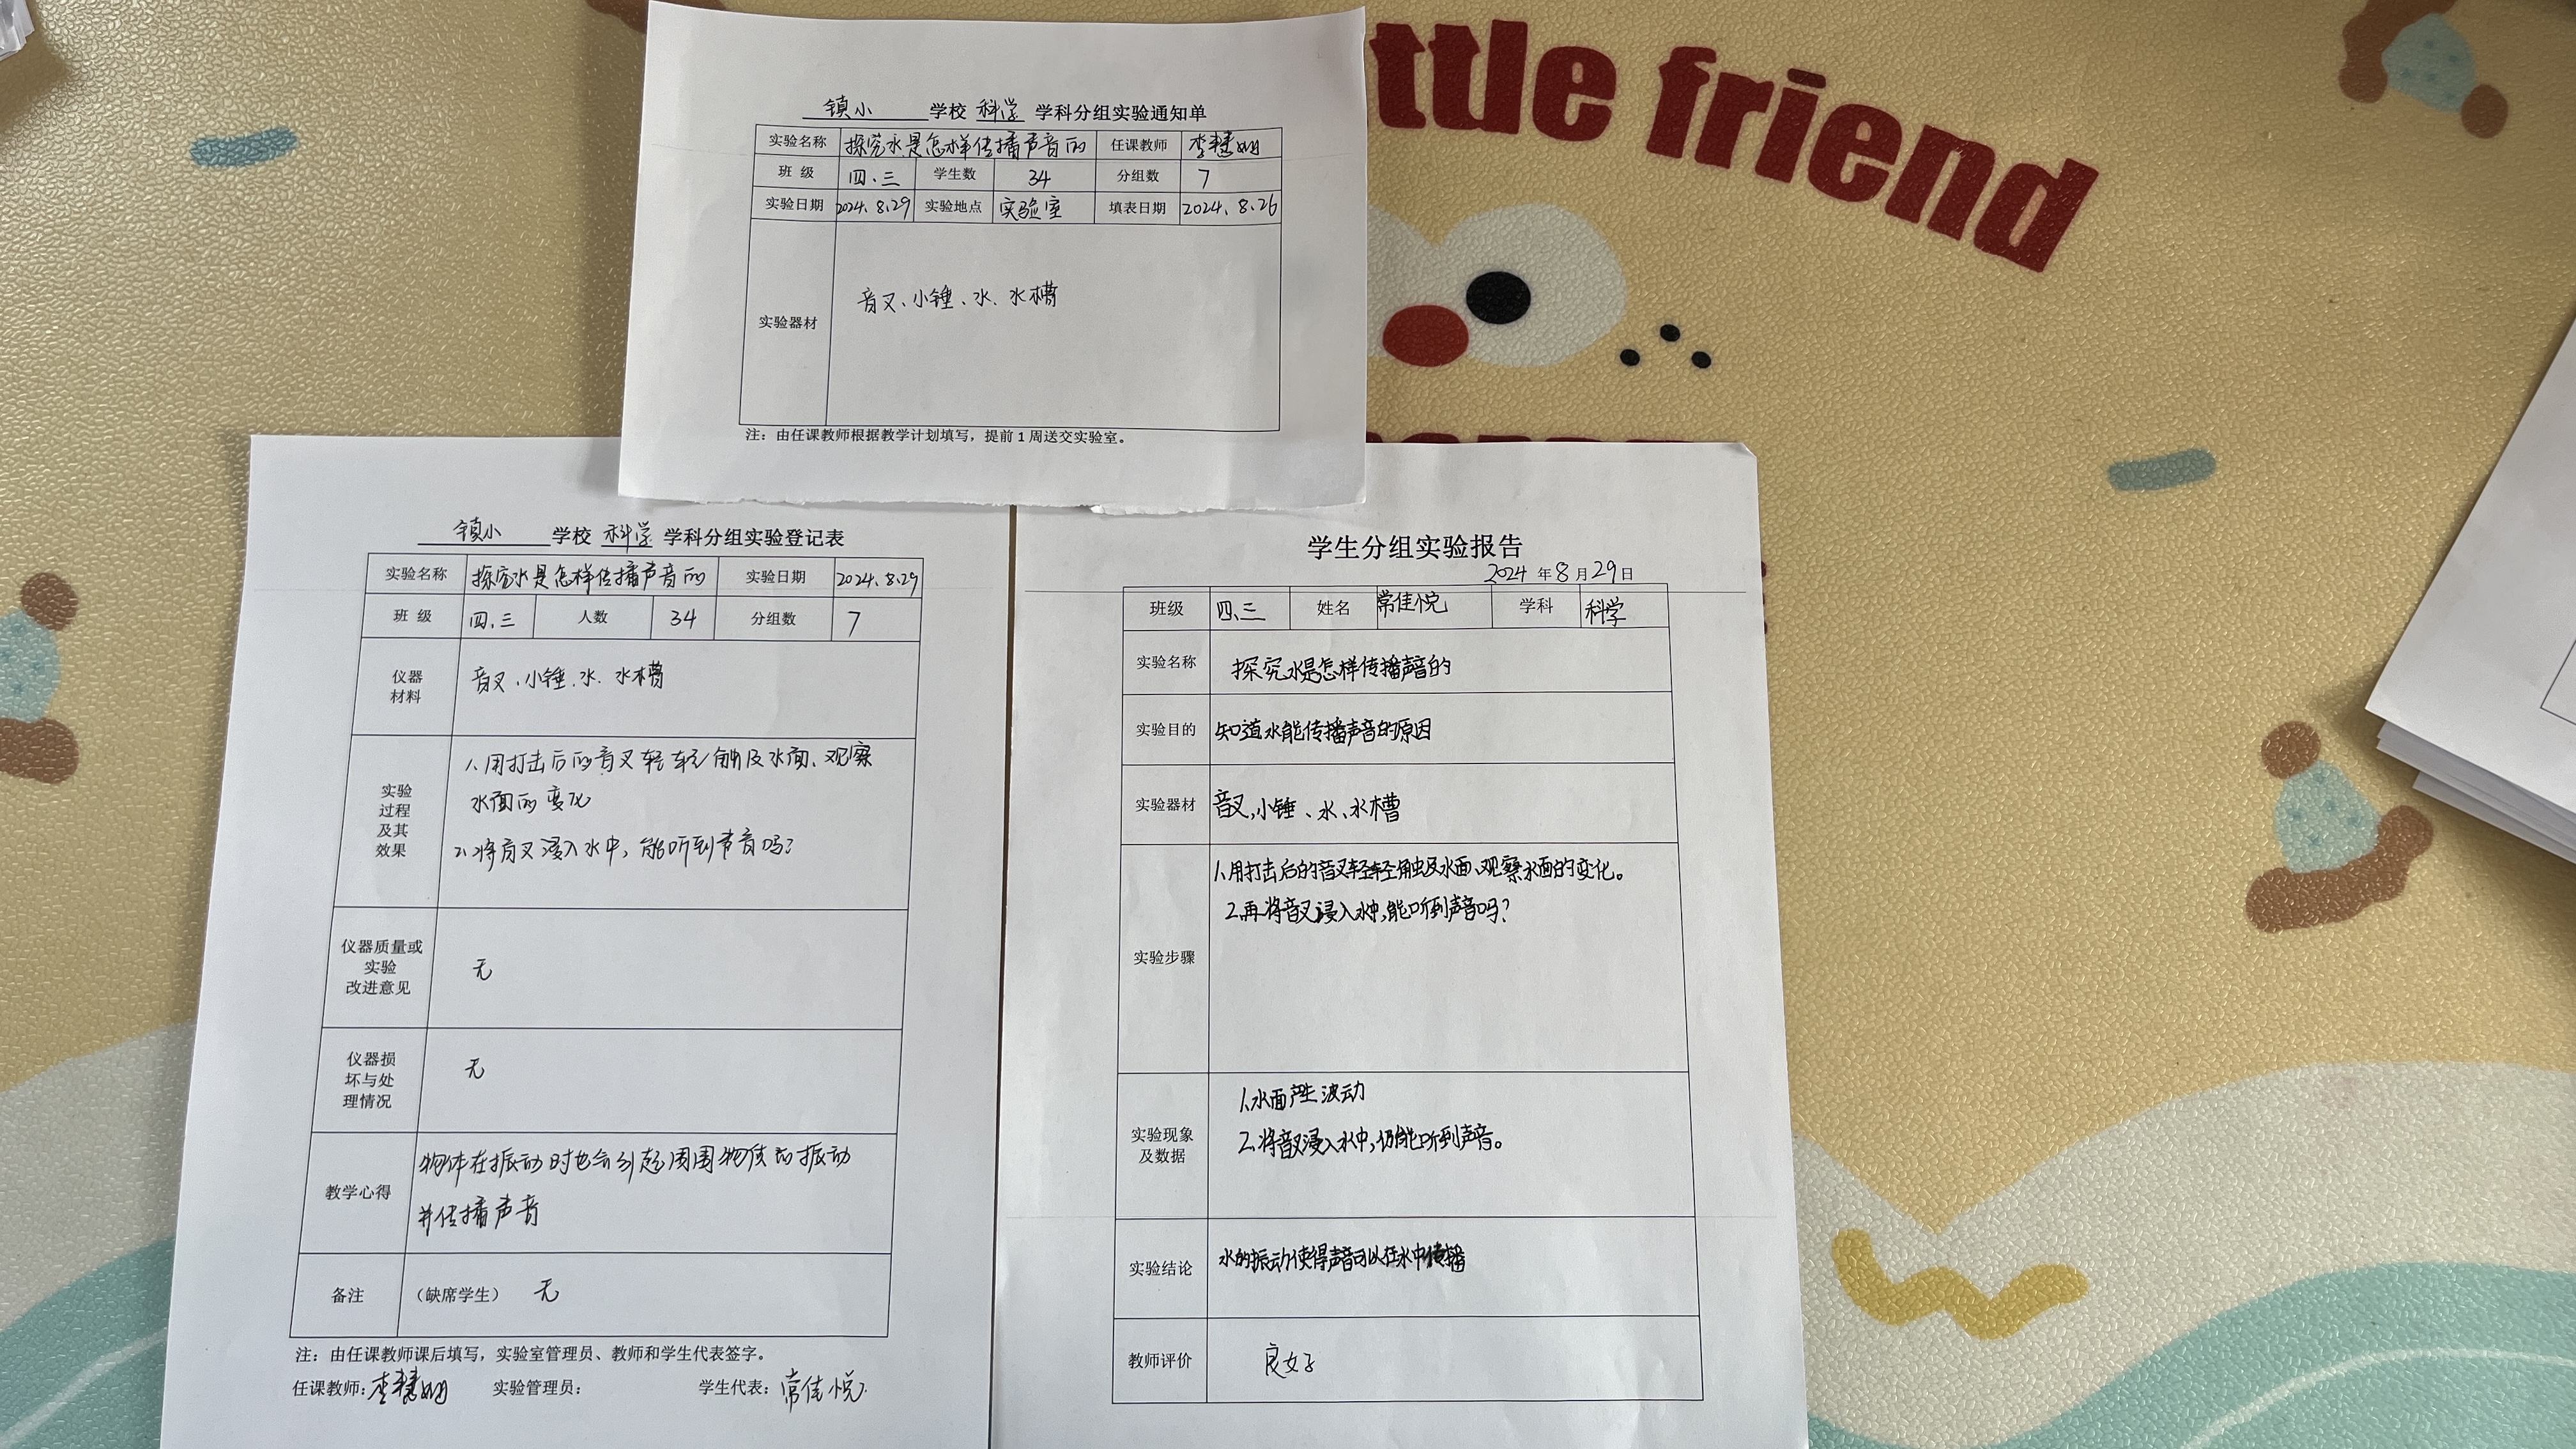 ttle friend
镇小 学校 科学 学科分组实验通知单
实验名称 探究水是怎样传播声音的 任课教师
班 级 四.三 学生数 34 分组数 7
实验日期 2024.8.29 实验地点 实验室 填表日期 2024.8.26
实验器材 音叉、小锤、水、水槽
注：由任课教师根据教学计划填写，提前 1 周送交实验室。
镇小 学校 科学 学科分组实验登记表
实验名称 探究水是怎样传播声音的 实验日期 2024.8.29
班 级 四.三 人数 34 分组数 7
仪器
材料
音叉、小锤、水、水槽
实验
过程
及其
效果
1、用打击后的音叉轻轻触及水面、观察
水面的变化
2、将音叉浸入水中，能听到声音吗？
仪器质量或
实验
改进意见
无
仪器损
坏与处
理情况
无
教学心得
物体在振动时也会引起周围物质的振动
并传播声音
备注 （缺席学生） 无
注：由任课教师课后填写，实验室管理员、教师和学生代表签字。
任课教师： 实验管理员： 学生代表：常佳悦
学生分组实验报告
2024 年 8 月 29 日
班级 四、三 姓名 常佳悦 学科 科学
实验名称 探究水是怎样传播声音的
实验目的 知道水能传播声音的原因
实验器材 音叉，小锤、水、水槽
实验步骤
1、用打击后的音叉轻轻触及水面、观察水面的变化。
2.再将音叉浸入水中，能听到声音吗？
实验现象
及数据
1、水面产生波动
2.将音叉浸入水中，仍能听到声音。
实验结论 水的振动使得声音可以在水中传播
教师评价 良好